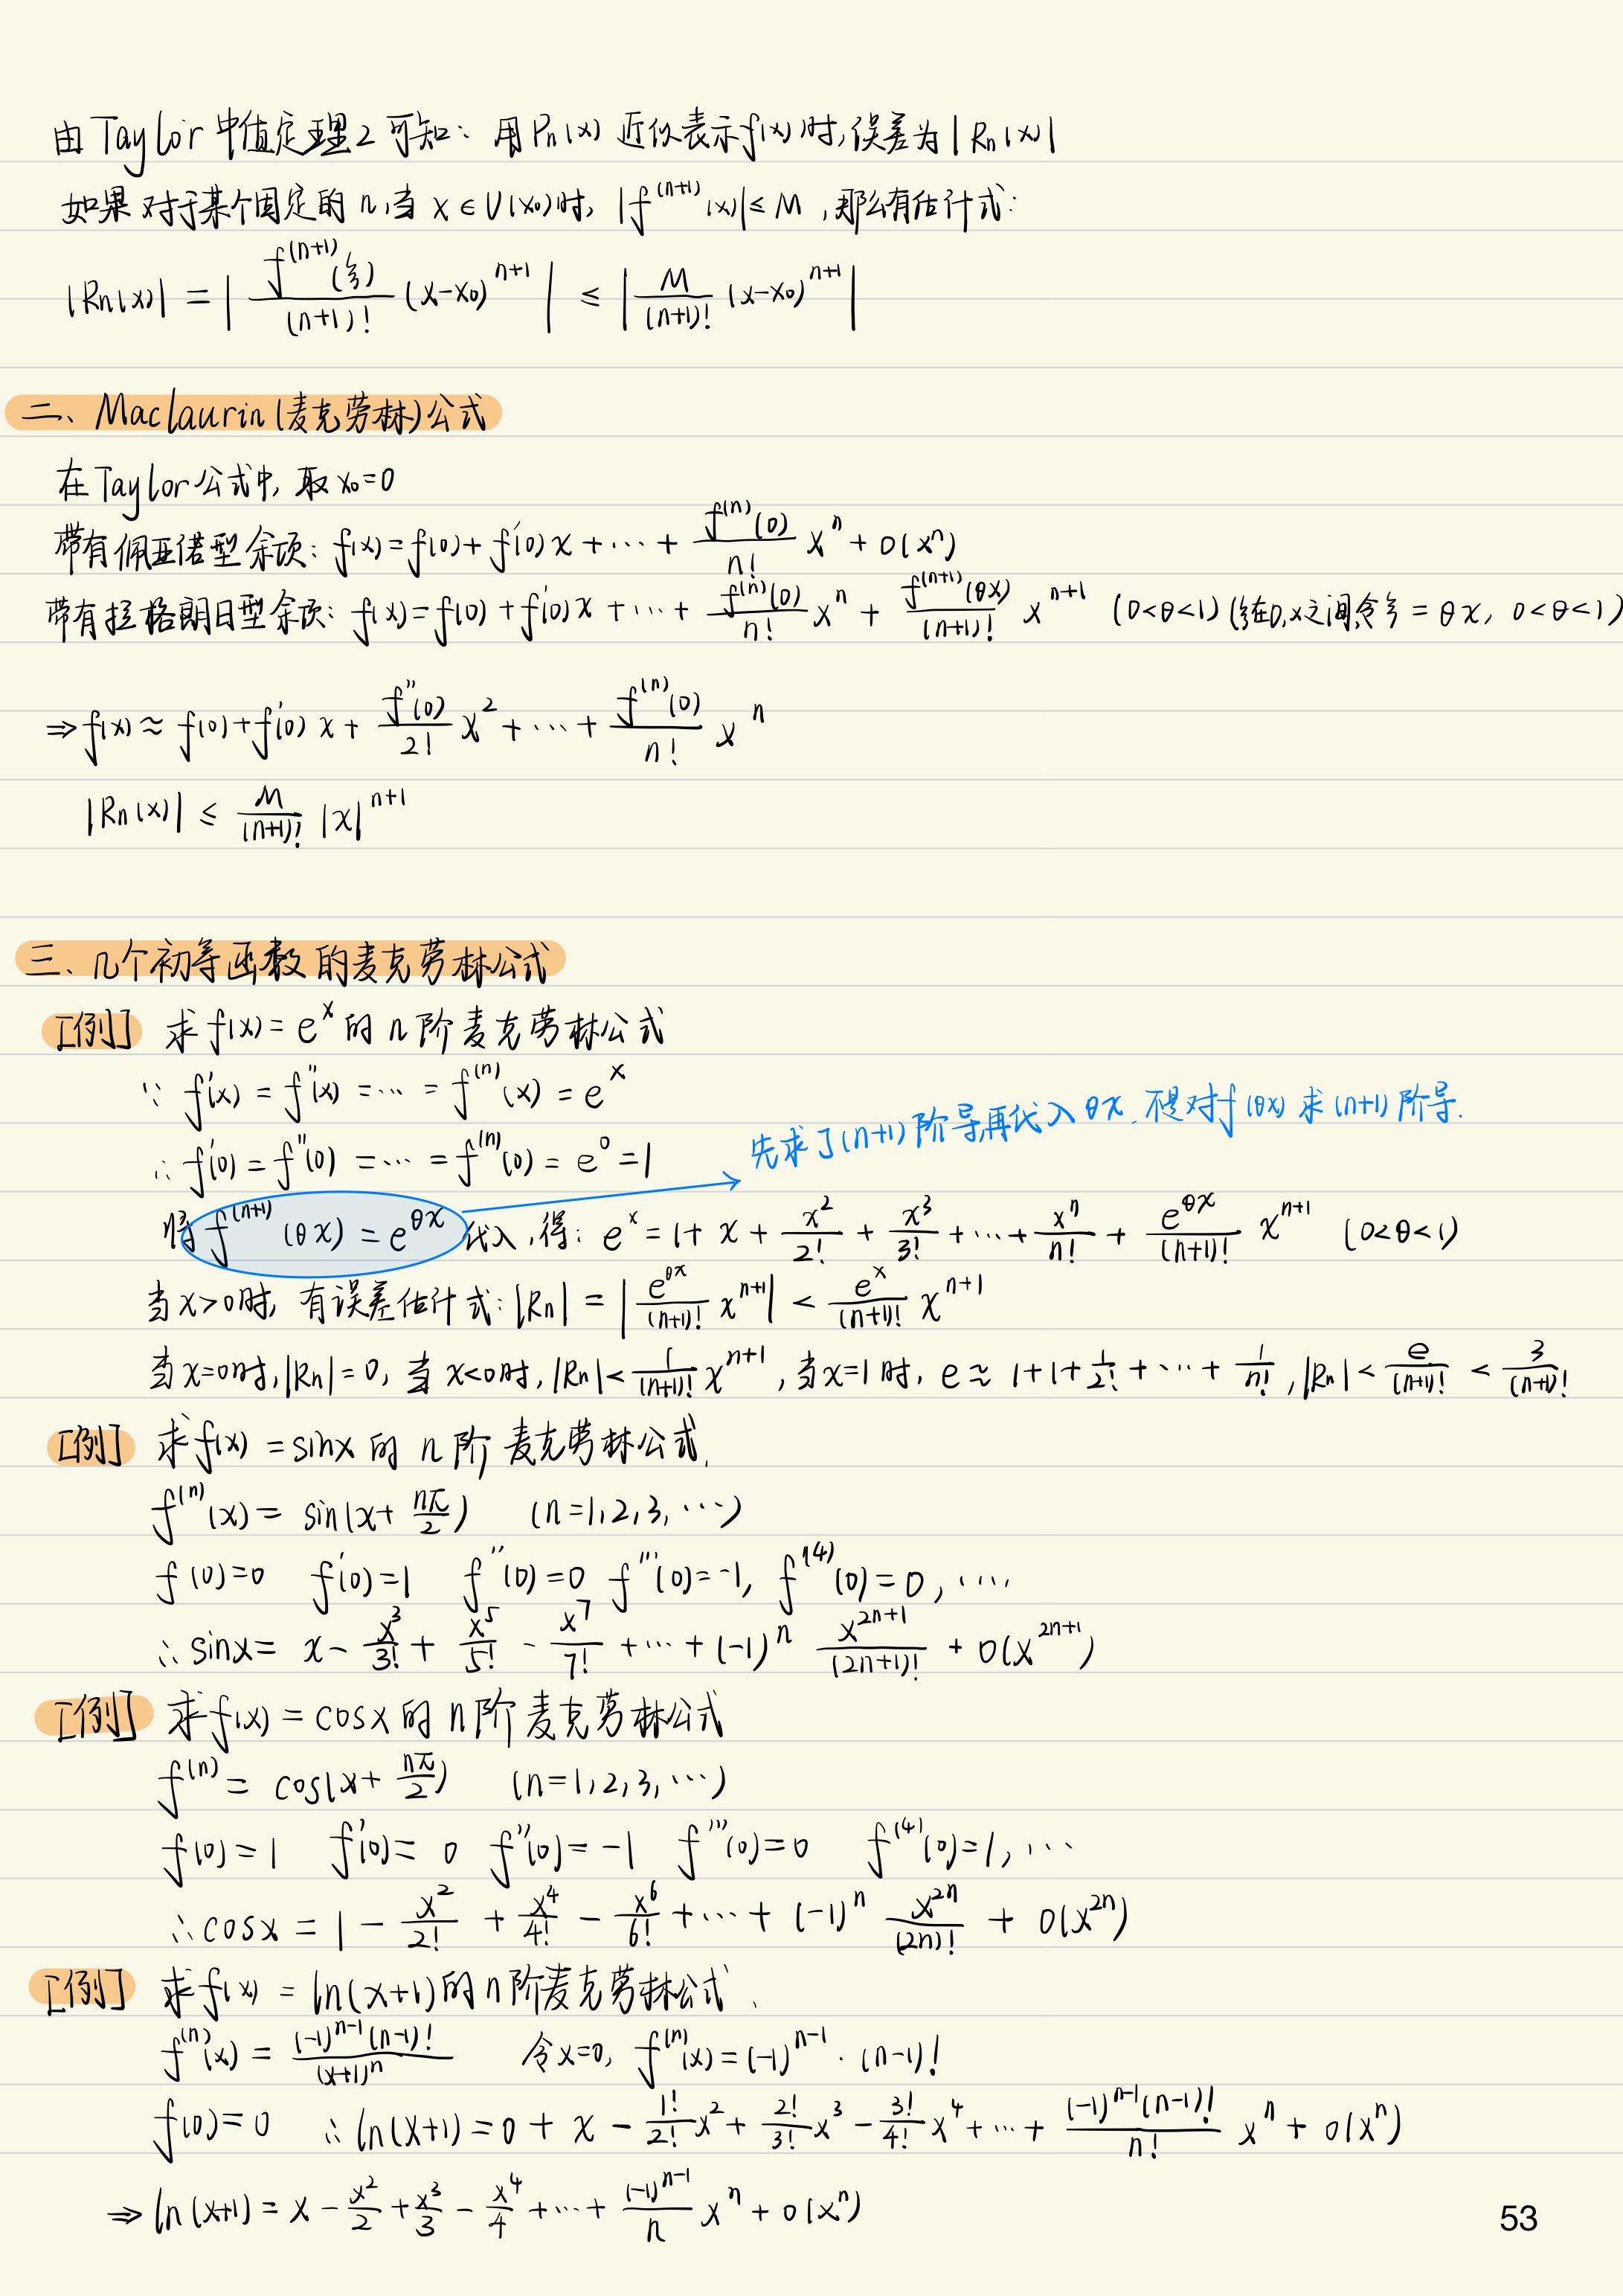 由Taylor中值定理2可知：用Pn(x)近似表示f(x)时,误差为|Rn(x)|
如果对于某个固定的n,当x∈U(x₀)时, |f⁽ⁿ⁺¹⁾(x)|≤M,那么有估计式:
|Rn(x)| = |f⁽ⁿ⁺¹⁾(ξ)/(n+1)! (x-x₀)ⁿ⁺¹| ≤ |M/(n+1)! (x-x₀)ⁿ⁺¹|
二、Maclaurin(麦克劳林)公式
在Taylor公式中,取x₀=0
带有佩亚诺型余项: f(x)=f(0)+f'(0)x+…+f⁽ⁿ⁾(0)/n! xⁿ+o(xⁿ)
带有拉格朗日型余项: f(x)=f(0)+f'(0)x+…+f⁽ⁿ⁾(0)/n! xⁿ+f⁽ⁿ⁺¹⁾(θx)/(n+1)! xⁿ⁺¹ (0<θ<1) (ξ在0,x之间,令ξ=θx, 0<θ<1)
⇒f(x)≈f(0)+f'(0)x+f''(0)/2! x²+…+f⁽ⁿ⁾(0)/n! xⁿ
|Rn(x)| ≤ M/(n+1)! |x|ⁿ⁺¹
三、几个初等函数的麦克劳林公式
[例] 求f(x)=eˣ的n阶麦克劳林公式
∵ f'(x)=f''(x)=…=f⁽ⁿ⁾(x)=eˣ
∴ f'(0)=f''(0)=…=f⁽ⁿ⁾(0)=e⁰=1
先求了(n+1)阶导,再代入θx.不是对f(θx)求(n+1)阶导.
将f⁽ⁿ⁺¹⁾(θx)=e^(θx)代入,得: eˣ=1+x+x²/2!+x³/3!+…+xⁿ/n!+e^(θx)/(n+1)! xⁿ⁺¹ (0<θ<1)
当x>0时,有误差估计式:|Rn|=|e^(θx)/(n+1)! xⁿ⁺¹|<eˣ/(n+1)! xⁿ⁺¹
当x=0时,|Rn|=0,当x<0时,|Rn|<1/(n+1)! xⁿ⁺¹,当x=1时, e≈1+1+1/2!+…+1/n!,|Rn|<e/(n+1)!<3/(n+1)!
[例] 求f(x)=sinx的n阶麦克劳林公式.
f⁽ⁿ⁾(x)=sin(x+nπ/2) (n=1,2,3,…)
f(0)=0 f'(0)=1 f''(0)=0 f'''(0)=-1, f⁽⁴⁾(0)=0,…
∴sinx=x-x³/3!+x⁵/5!-x⁷/7!+…+(-1)ⁿ x²ⁿ⁺¹/(2n+1)!+o(x²ⁿ⁺¹)
[例] 求f(x)=cosx的n阶麦克劳林公式
f⁽ⁿ⁾=cos(x+nπ/2) (n=1,2,3,…)
f(0)=1 f'(0)=0 f''(0)=-1 f'''(0)=0 f⁽⁴⁾(0)=1,…
∴cosx=1-x²/2!+x⁴/4!-x⁶/6!+…+(-1)ⁿ x²ⁿ/(2n)!+o(x²ⁿ)
[例] 求f(x)=ln(x+1)的n阶麦克劳林公式.
f⁽ⁿ⁾(x)=(-1)ⁿ⁻¹(n-1)!/(x+1)ⁿ 令x=0, f⁽ⁿ⁾(x)=(-1)ⁿ⁻¹·(n-1)!
f(0)=0 ∴ln(x+1)=0+x-1!/2! x²+2!/3! x³-3!/4! x⁴+…+(-1)ⁿ⁻¹(n-1)!/n! xⁿ+o(xⁿ)
⇒ln(x+1)=x-x²/2+x³/3-x⁴/4+…+(-1)ⁿ⁻¹/n xⁿ+o(xⁿ)
53